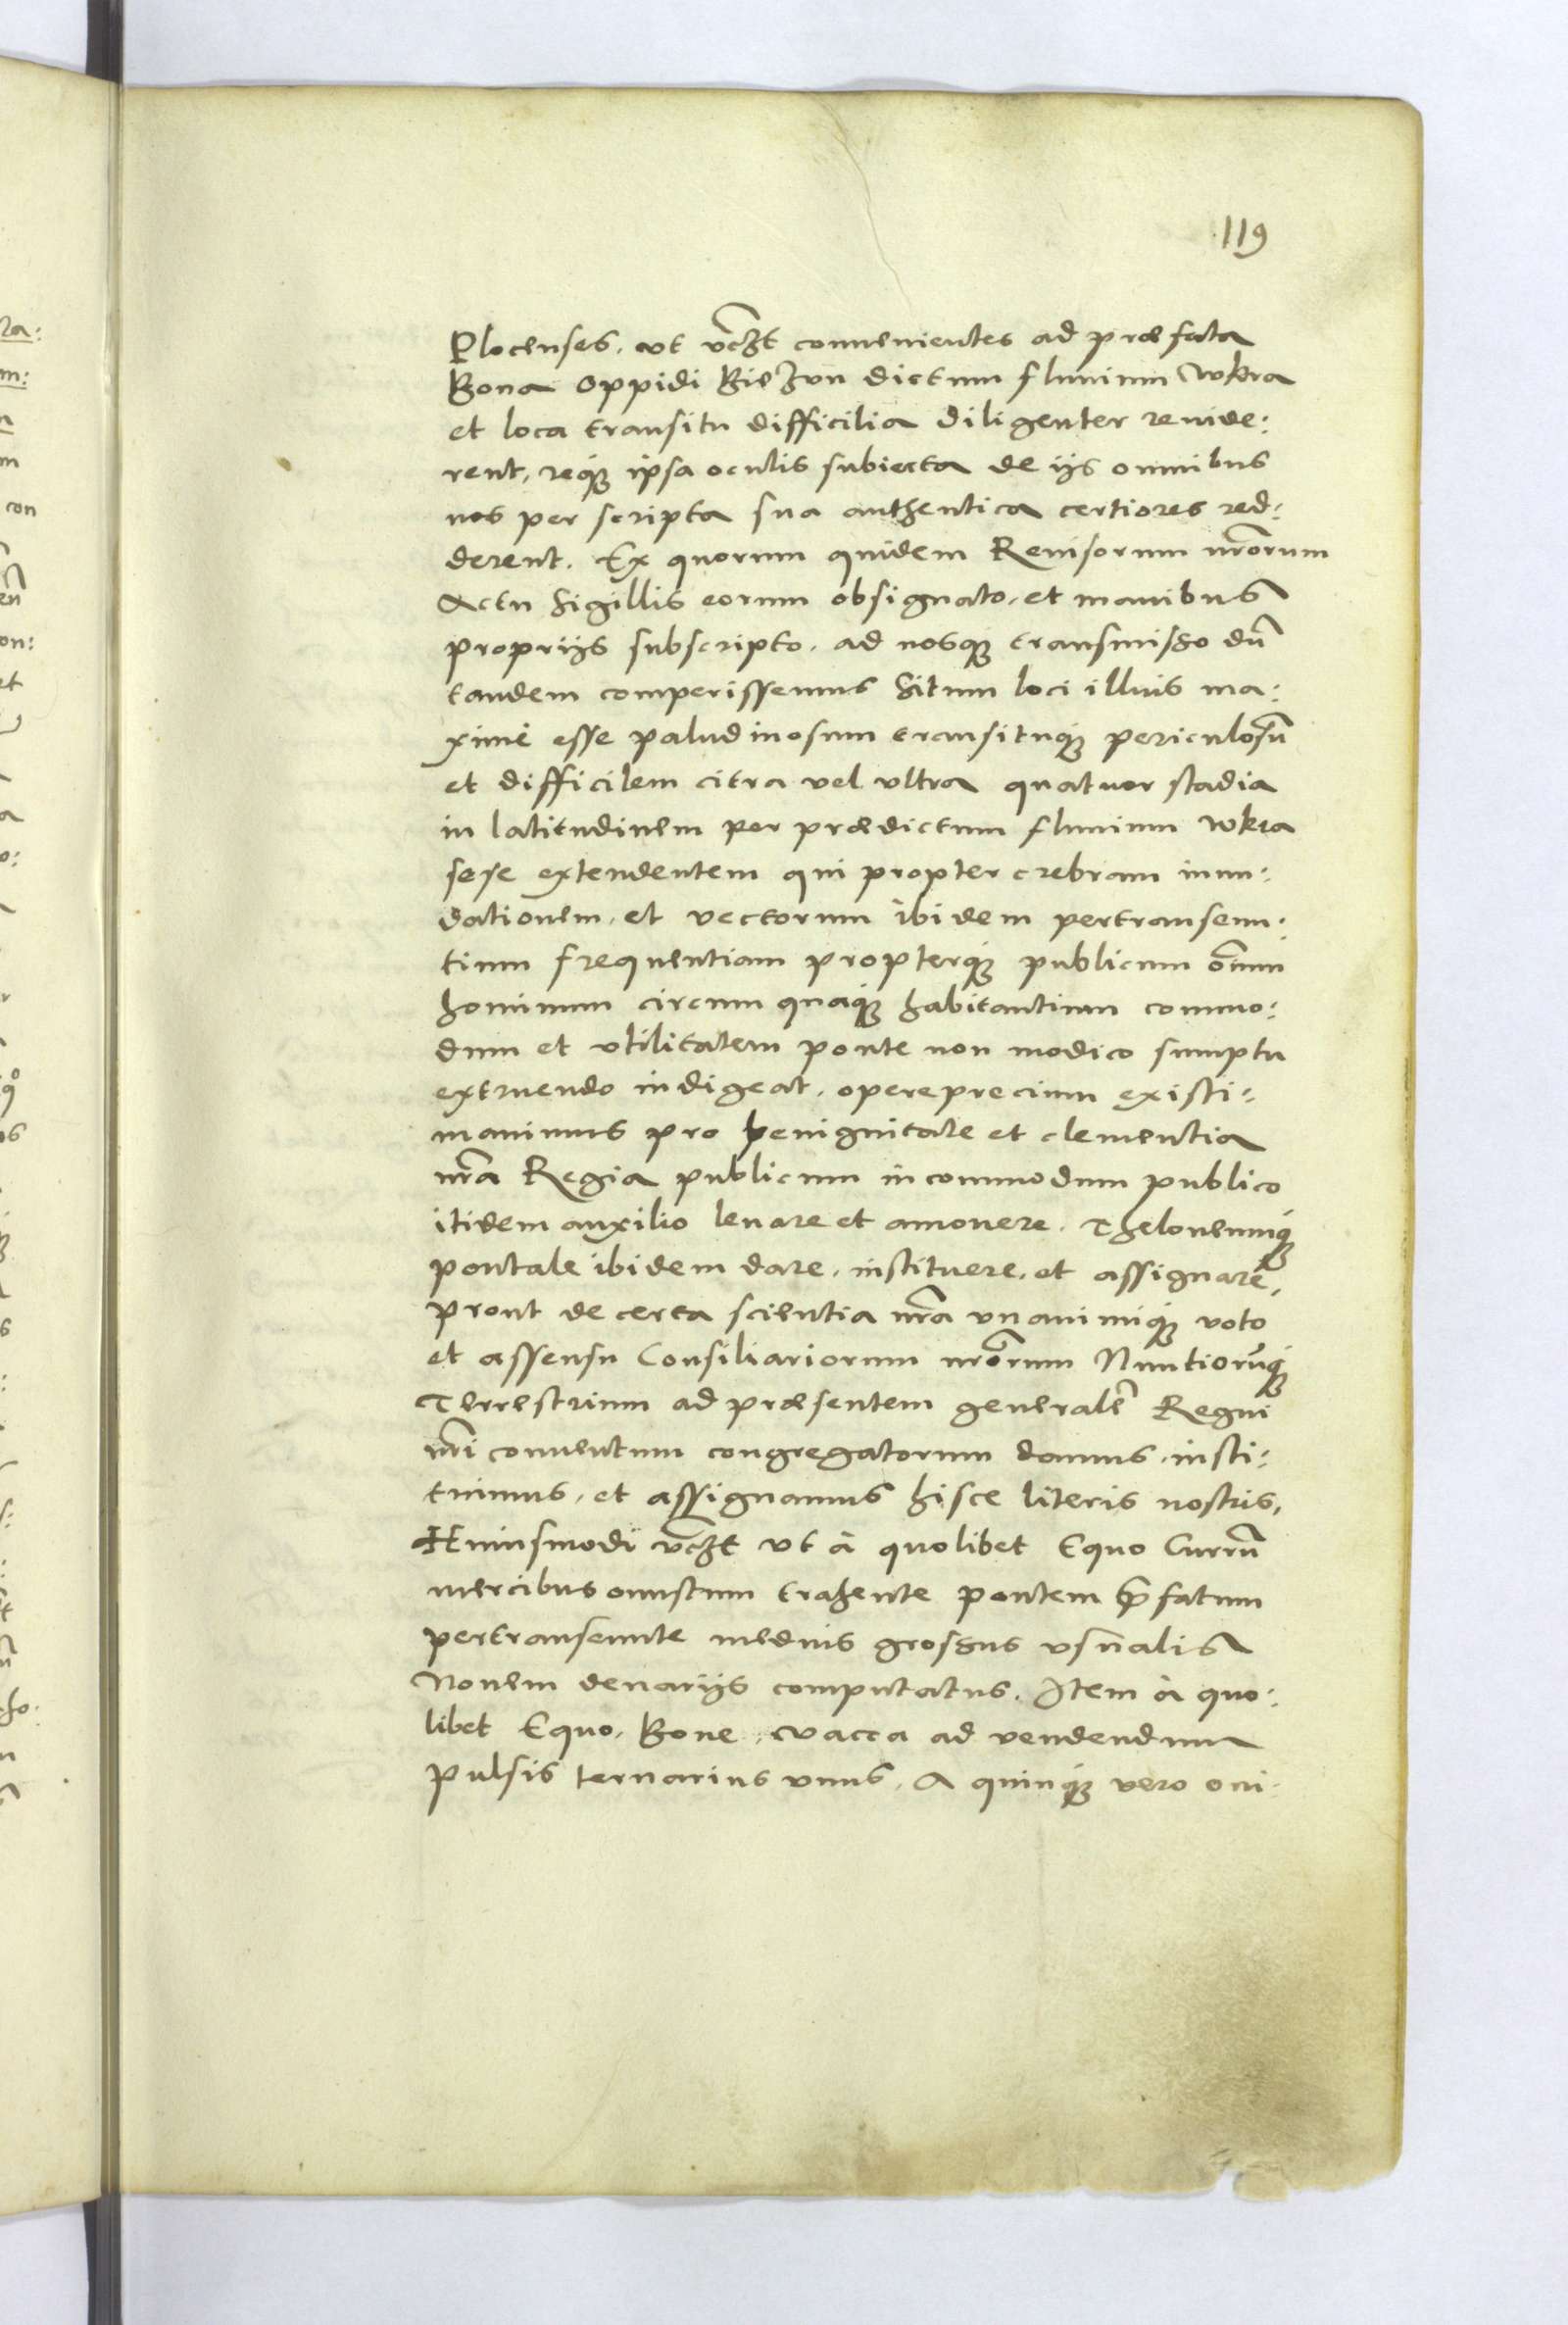 119
Plocenses. ut vcꝫt conuenientes ad præfata
Bona Oppidi Bieżun dictum fluuium Wkra
et loca transitu difficilia diligenter reuide:
rent, reqꝫ ipsa oculis subiecta de ijs omnibus
nos per scripta sua authentica certiores red:
derent. Ex quorum quidem Reuisorum nrõrum
Actu Sigillis eorum obsignato, et manibus
proprijs subscripto, ad nosqꝫ transmisso dũ
tandem comperissemus Situm loci illius ma:
ximè esse paludinosum transituqꝫ periculosũ
et difficilem citra vel vltra quatuor stadia
in latitudinem per prædictum fluuium Wkra
sese extendentem qui propter crebram inun:
dationem, et vectorum ibidem pertranseun:
tium frequentiam propterqꝫ publicum oĩum
hominum circum quaqꝫ habitantium commo:
dum et vtilitatem ponte non modico sumptu
extruendo indigeat, opereprecium existi:
mauimus pro benignitate et clementia
nr̃a Regia publicum incommodum publico
itidem auxilio leuare et amouere. Theloneumqꝫ
pontale ibidem dare, instituere, et assignare,
prout de certa scientia nr̃a vnanimiqꝫ voto
et assensu Consiliariorum nrõrum Nuntiorũqꝫ
Terrestrium ad præsentem generalẽ Regni
nr̃i conuentum congregatorum damus, insti:
tuimus, et assignamus hisce literis nostris,
Huiusmodi vcꝫt vt à quolibet Equo Currũ
mercibus onustum trahente pontem p̃fatum
pertranseunte medius grossus vsualis
Nouem denarijs computatus. Item à quo:
libet Equo, Boue, vacca ad vendendum
pulsis ternarius vnus, A quinqꝫ vero oui: